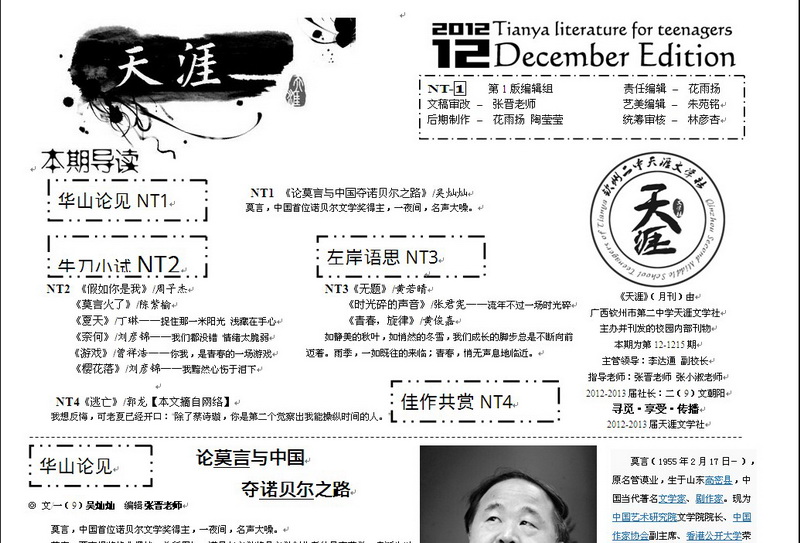 天涯
2012 Tianya literature for teenagers
12 December Edition
NT-1 第1版编辑组 责任编辑 - 花雨扬
文稿审改 - 张晋老师 艺美编辑 - 朱苑铭
后期制作 - 花雨扬 陶莹莹 统筹审核 - 林彦杏
本期导读
华山论见 NT1
NT1 《论莫言与中国夺诺贝尔之路》/吴灿灿
莫言，中国首位诺贝尔文学奖得主，一夜间，名声大噪。
牛刀小试 NT2
NT2 《假如你是我》/周子杰
《莫言火了》/陈紫榆
《夏天》/丁琳——捉住那一米阳光 浅藏在手心
《奈何》/刘彦锦——我们都没错 情绪太脆弱
《游戏》/曾祥浩——你我，是青春的一场游戏
《樱花落》/刘彦锦——我黯然心伤于泪下
左岸语思 NT3
NT3《无题》/黄若晴
《时光碎的声音》/张君宽——流年不过一场时光碎
《青春，旋律》/黄俊鑫
如静美的秋叶，如悄然的冬雪，我们成长的脚步总是不断向前
迈着。雨季，一如既往的来临；青春，悄无声息地临近。
NT4《逃亡》/郭龙【本文摘自网络】
我想反悔，可老夏已经开口：“除了蔡诗璇，你是第二个觉察出我能操纵时间的人。”
佳作共赏 NT4
钦州二中天涯文学社
天涯
Qinzhou Second Middle School Teenagers of Tianya
《天涯》（月刊）由
广西钦州市第二中学天涯文学社
主办并刊发的校园内部刊物
本期为第 12-1215 期
主管领导：李达通 副校长
指导老师：张晋老师 张小淑老师
2012-2013 届社长：二（9）文朝阳
寻觅·享受·传播
2012-2013 届天涯文学社
华山论见
论莫言与中国
夺诺贝尔之路
◎ 文一（9）吴灿灿 编辑 张晋老师
莫言，中国首位诺贝尔文学奖得主，一夜间，名声大噪。
莫言（1955 年 2 月 17 日－），
原名管谟业，生于山东高密县，中
国当代著名文学家、剧作家。现为
中国艺术研究院文学院院长、中国
作家协会副主席、香港公开大学荣